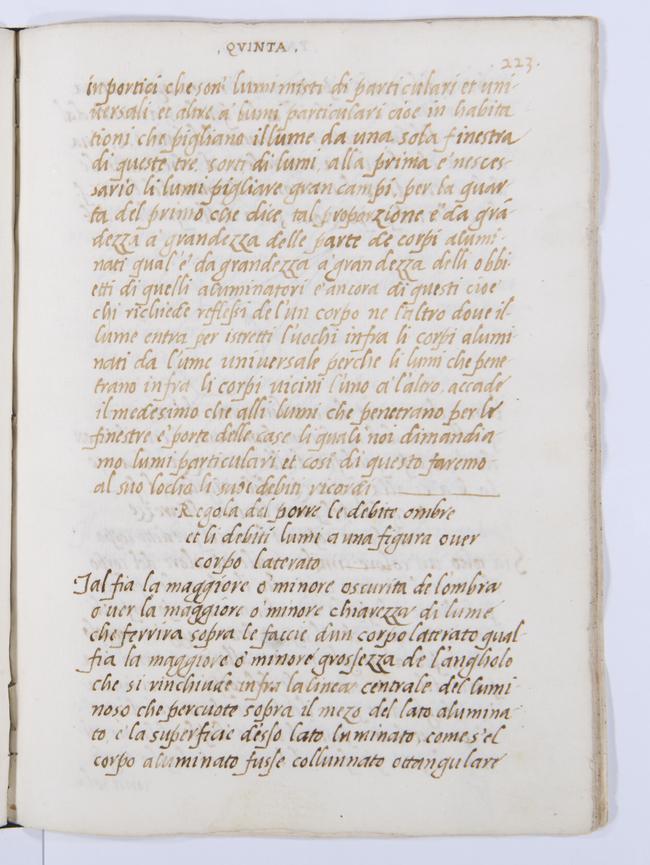 . QVINTA .
. 223 .
in portici che son' lumi misti di particulari et uni-
uersali et altre a' lumi particulari cioe in habita
tioni che pigliano illume da una sola finestra
di queste tre, sorti di lumi, alla prima e' nesces-
sario li lumi pigliare gran campi, per la quar
ta del primo che dice, tal proporzione e' da grã
dezza a' grandezza delle parte de corpi alumi-
nati qual' e' da grandezza a' grandezza delli obbi-
etti di quelli aluminatori e' ancora di questi cioe'
chi richiede reflessi de l'un corpo ne l'altro doue il-
lume entra per istretti l'uochi infra li corpi alumi
nati da l'ume uniuersale perche li lumi che pene
trano infra li corpi uicini l'uno a' l'altro, accade
il medesimo che alli lumi che penetrano per le
finestre e' porte delle case li quali noi dimandia
mo lumi particulari et cosi' di questo faremo
al suo locho li suoi debiti ricordi
Regola del porre le debite ombre
et li debiti lumi a una figura ouer
corpo laterato
Tal fia la maggiore o' minore oscurita de l'ombra
o' uer la maggiore o' minore chiarezza di lume
che ferrira sopra le faccie d'un corpo laterato qual-
fia la maggiore o' minore grossezza de l'angholo
che si rinchiude infra la linea centrale del lumi-
noso che percuote sopra il mezo del lato alumina-
to, e' la superficie d'esso lato luminato, come s'el
corpo aluminato fusse collunnato ottangulare